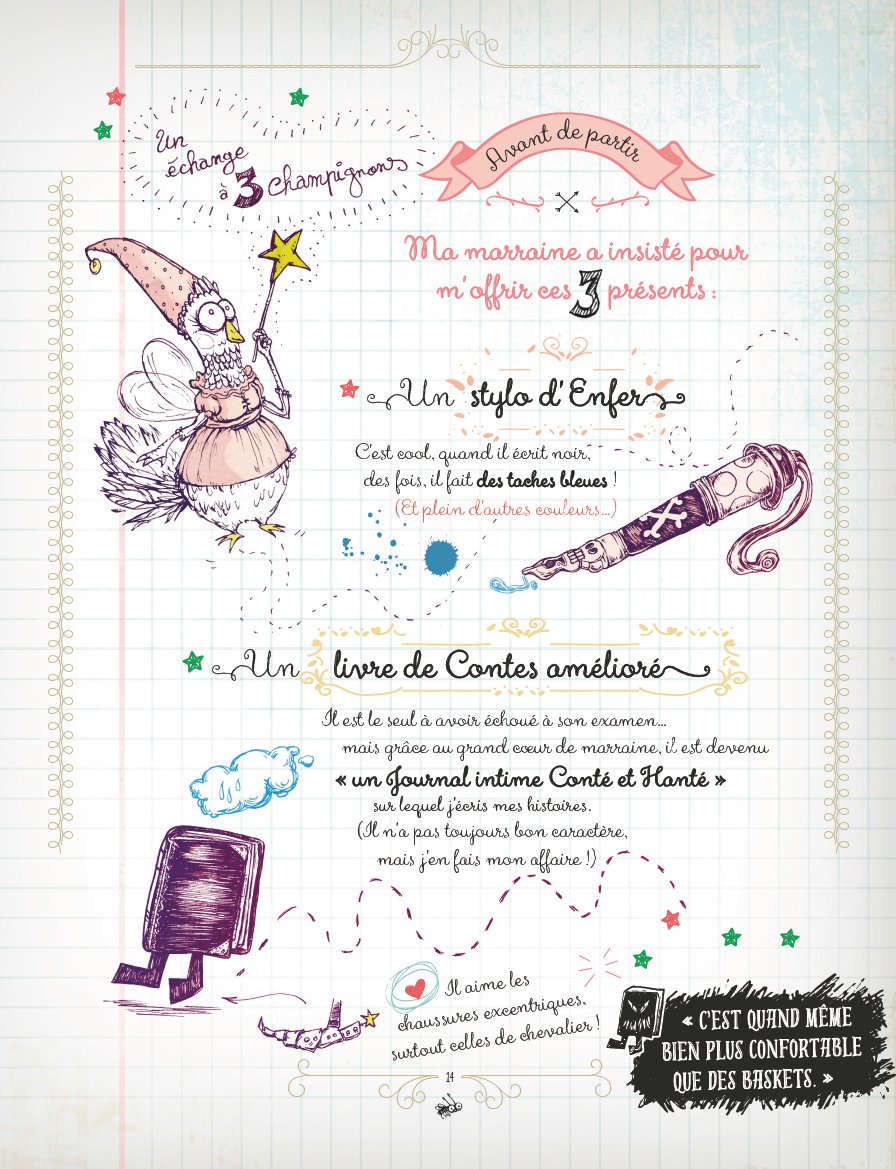 Un
échange
à 3 champignons
Avant de partir
Ma marraine a insisté pour
m'offrir ces 3 présents :
Un stylo d'Enfer
C'est cool, quand il écrit noir,
des fois, il fait des taches bleues !
(Et plein d'autres couleurs...)
Un livre de Contes amélioré
Il est le seul à avoir échoué à son examen...
mais grâce au grand cœur de marraine, il est devenu
« un Journal intime Conté et Hanté »
sur lequel j'écris mes histoires.
(Il n'a pas toujours bon caractère,
mais j'en fais mon affaire !)
Il aime les
chaussures excentriques,
surtout celles de chevalier !
« C'EST QUAND MÊME
BIEN PLUS CONFORTABLE
QUE DES BASKETS. »
14